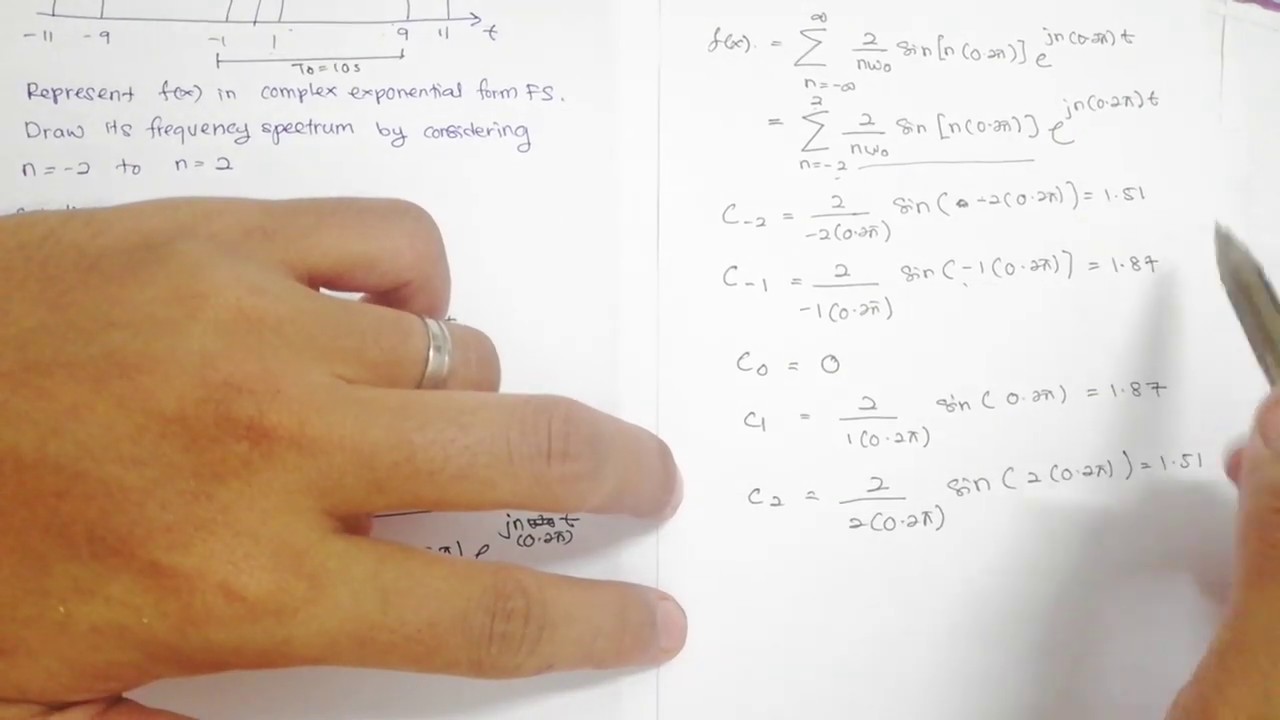 -11 -9 -1 1 9 11 t
T0 = 10s
Represent f(x) in complex exponential form FS.
Draw its frequency spectrum by considering
n = -2 to n = 2
jn t
(0.2π)
e
f(x). = ∑ n=-∞ ∞ 2/nω0 sin[n(0.2π)] e^jn(0.2π)t
= ∑ n=-2 2 2/nω0 sin[n(0.2π)] e^jn(0.2π)t
C-2 = 2/-2(0.2π) sin(-2(0.2π)) = 1.51
C-1 = 2/-1(0.2π) sin(-1(0.2π)) = 1.87
C0 = 0
C1 = 2/1(0.2π) sin(0.2π) = 1.87
C2 = 2/2(0.2π) sin(2(0.2π)) = 1.51